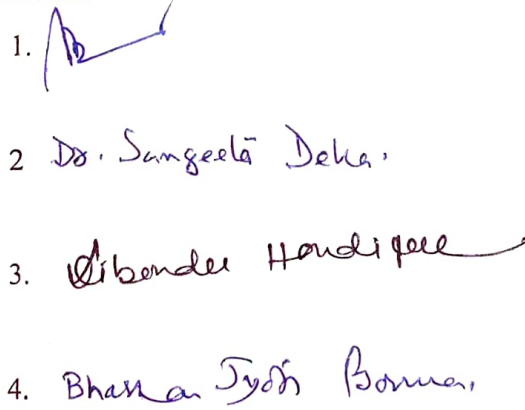 1.
2 Dr. Sangeeta Deka.
3. Sibendu Handique
4. Bhaskar Jyoti Borua.